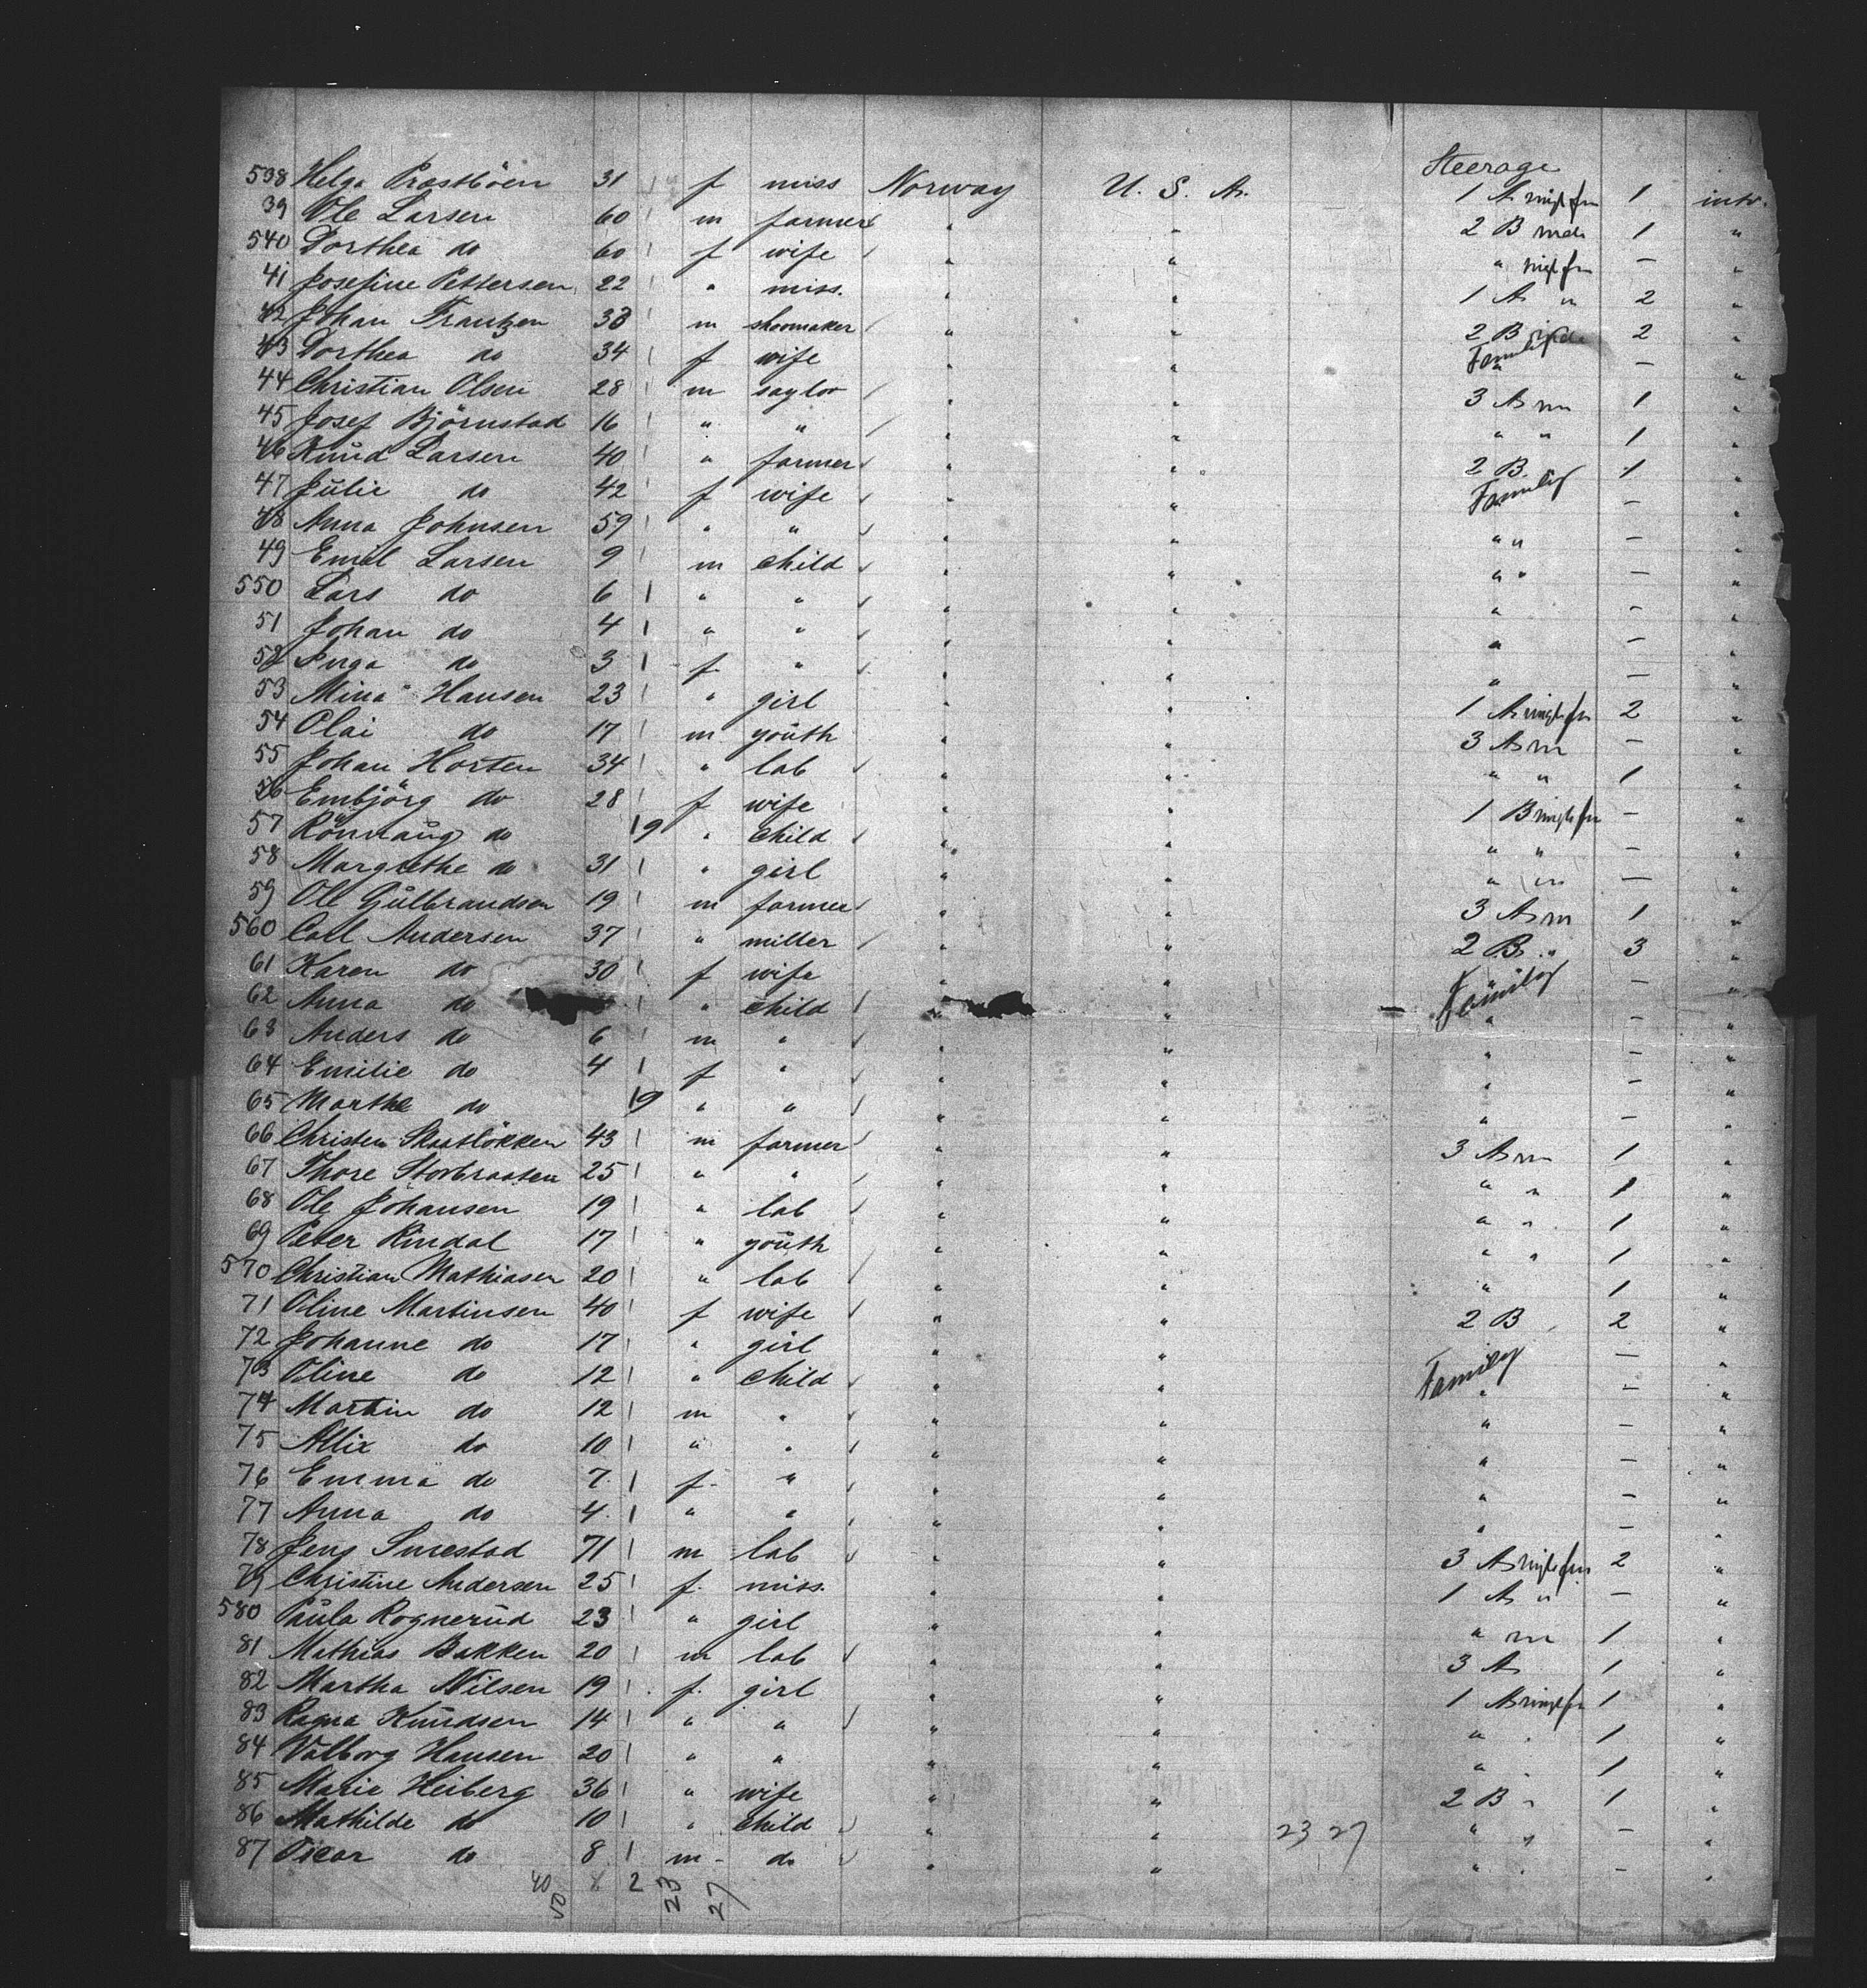 Steerage
538 Helga Præstböen 31 f miss Norway U. S. A. 1 A 1 intr.
39 Ole Larsen 60 m farmer " " 2 B 1 "
540 Dorthea do 60 f wife " " " — "
41 Josefine Pettersen 22 " miss. " " 1 A " 2 "
42 Johan Frantzen 38 m shoomaker " " 2 B 2 "
43 Dorthea do 34 f wife " " Family — "
44 Christian Olsen 28 m saylor " " 3 A m 1 "
45 Josef Björnstad 16 " " " " " " 1 "
46 Knud Larsen 40 " farmer " " 2 B. 1 "
47 Julie do 42 f wife " " Family — "
48 Anna Johnsen 59 " " " " " " — "
49 Emil Larsen 9 m child " " " " — "
550 Lars do 6 " " " " " — "
51 Johan do 4 " " " " " — "
52 Inga do 3 f " " " " — "
53 Mina Hansen 23 " girl " " 1 A 2 "
54 Olai do 17 m youth " " 3 A m — "
55 Johan Horten 34 " lab " " " " 1 "
56 Embjörg do 28 f wife " " 1 B — "
57 Rönnaug do 19 " child " " " " — "
58 Margrethe do 31 " girl " " " " — "
59 Ole Gulbrandsen 19 m farmer " " 3 A m 1 "
560 Carl Andersen 37 " miller " " 2 B " 3 "
61 Karen do 30 f wife " " Family — "
62 Anna do " child " " " — "
63 Anders do 6 m " " " " — "
64 Emilie do 4 f " " " " — "
65 Marthe do 19 " " " " " — "
66 Christen Skutlökken 43 m farmer " " 3 A m 1 "
67 Thore Storbraaten 25 " " " " " " 1 "
68 Ole Johansen 19 " lab " " " " 1 "
69 Peter Rindal 17 " youth " " " " 1 "
570 Christian Mathiasen 20 " lab " " " 1 "
71 Oline Martinsen 40 f wife " " 2 B 2 "
72 Johanne do 17 " girl " " Family — "
73 Oline do 12 " child " " " — "
74 Martin do 12 m " " " " — "
75 Allix do 10 " " " " " — "
76 Emma do 7 f " " " " — "
77 Anna do 4 " " " " " — "
78 Jens Snrestad 71 m lab " " 3 A 2 "
79 Christine Andersen 25 f. miss. " " 1 A " — "
580 Paula Rognerud 23 " girl " " " m 1 "
81 Mathias Bakken 20 m lab " " 3 A 1 "
82 Martha Nilsen 19 f. girl " " 1 A 1 "
83 Ragna Knudsen 14 " " " " " " 1 "
84 Valborg Hansen 20 " " " " " " 1 "
85 Marie Heiberg 36 " wife " " 2 B " 1 "
86 Mathilde do 10 " child " " 23 27 " " — "
87 Oscar do 8 m do " " " " — "
40 50 8 2 23 27